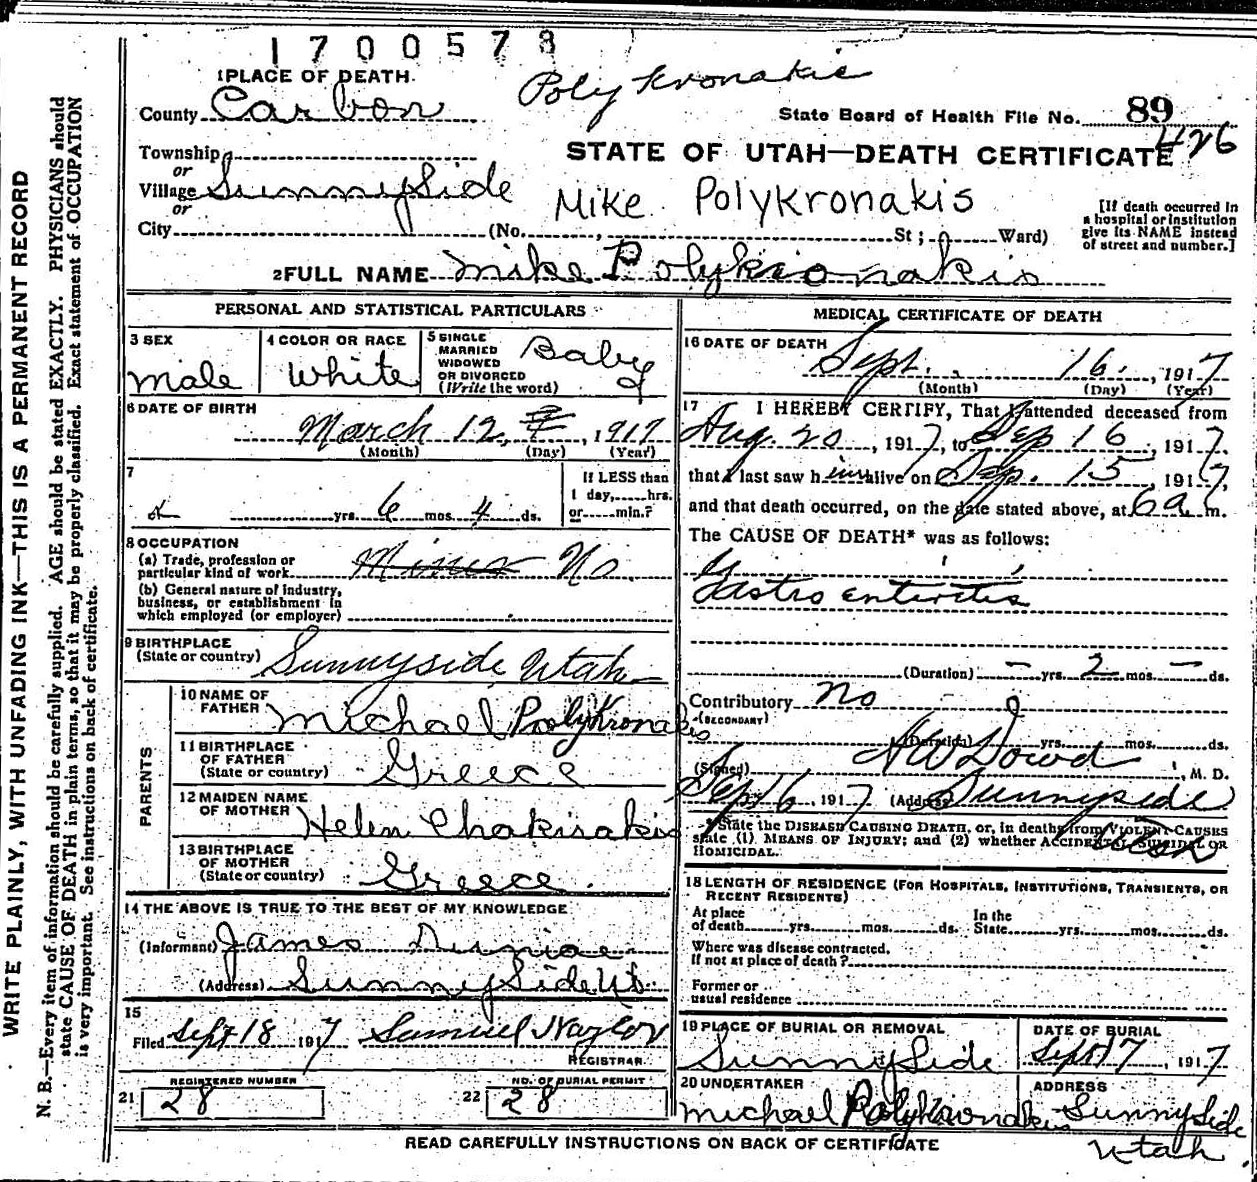 1700578
1 PLACE OF DEATH.
Polykronakis
County Carbon
State Board of Health File No. 89
426
Township
or
Village SunnySide
or
City (No. , St; Ward)
STATE OF UTAH—DEATH CERTIFICATE
Mike Polykronakis
[If death occurred in
a hospital or institution
give its NAME instead
of street and number.]
2 FULL NAME Mike Polykronakis
PERSONAL AND STATISTICAL PARTICULARS
3 SEX
male
4 COLOR OR RACE
White
5 SINGLE
MARRIED
WIDOWED
OR DIVORCED
(Write the word)
Baby
6 DATE OF BIRTH
March 12, 1917
(Month) (Day) (Year)
7
yrs. 6 mos. 4 ds.
If LESS than
1 day, hrs.
or min.?
8 OCCUPATION
(a) Trade, profession or
particular kind of work No.
(b) General nature of industry,
business, or establishment in
which employed (or employer)
9 BIRTHPLACE
(State or country) Sunnyside Utah
PARENTS
10 NAME OF
FATHER Michael PolyKronakis
11 BIRTHPLACE
OF FATHER
(State or country) Greece
12 MAIDEN NAME
OF MOTHER Helen Chakirakis
13 BIRTHPLACE
OF MOTHER
(State or country) Greece.
14 THE ABOVE IS TRUE TO THE BEST OF MY KNOWLEDGE
(Informant) James
(Address) SunnySide Ut.
15
Filed Sept 18 1917 Samuel Naylor
REGISTRAR
REGISTERED NUMBER
21 28
NO. OF BURIAL PERMIT
22 28
MEDICAL CERTIFICATE OF DEATH
16 DATE OF DEATH
Sept. 16., 1917
(Month) (Day) (Year)
17 I HEREBY CERTIFY, That I attended deceased from
Aug. 20, 1917, to Sep 16, 1917,
that I last saw him alive on Sep. 15, 1917,
and that death occurred, on the date stated above, at 6 a. m.
The CAUSE OF DEATH* was as follows:
Gastro enteritis
(Duration) — yrs. 2 mos. — ds.
Contributory No
(SECONDARY)
(Duration) yrs. mos. ds.
(Signed) A W Dowd, M. D.
Sep 16, 1917 (Address) Sunnyside
Utah
*State the DISEASE CAUSING DEATH, or, in deaths from VIOLENT CAUSES
state (1) MEANS OF INJURY; and (2) whether ACCIDENTAL, SUICIDAL OR
HOMICIDAL.
18 LENGTH OF RESIDENCE (FOR HOSPITALS, INSTITUTIONS, TRANSIENTS, OR
RECENT RESIDENTS)
At place
of death yrs. mos. ds.
In the
State yrs. mos. ds.
Where was disease contracted,
if not at place of death?
Former or
usual residence
19 PLACE OF BURIAL OR REMOVAL
SunnySide
DATE OF BURIAL
Sept 17, 1917
20 UNDERTAKER
Michael Polykronakis
ADDRESS
SunnySide
Utah
READ CAREFULLY INSTRUCTIONS ON BACK OF CERTIFICATE
WRITE PLAINLY, WITH UNFADING INK—THIS IS A PERMANENT RECORD
N. B.—Every item of information should be carefully supplied. AGE should be stated EXACTLY. PHYSICIANS should
state CAUSE OF DEATH in plain terms, so that it may be properly classified. Exact statement of OCCUPATION
is very important. See instructions on back of certificate.